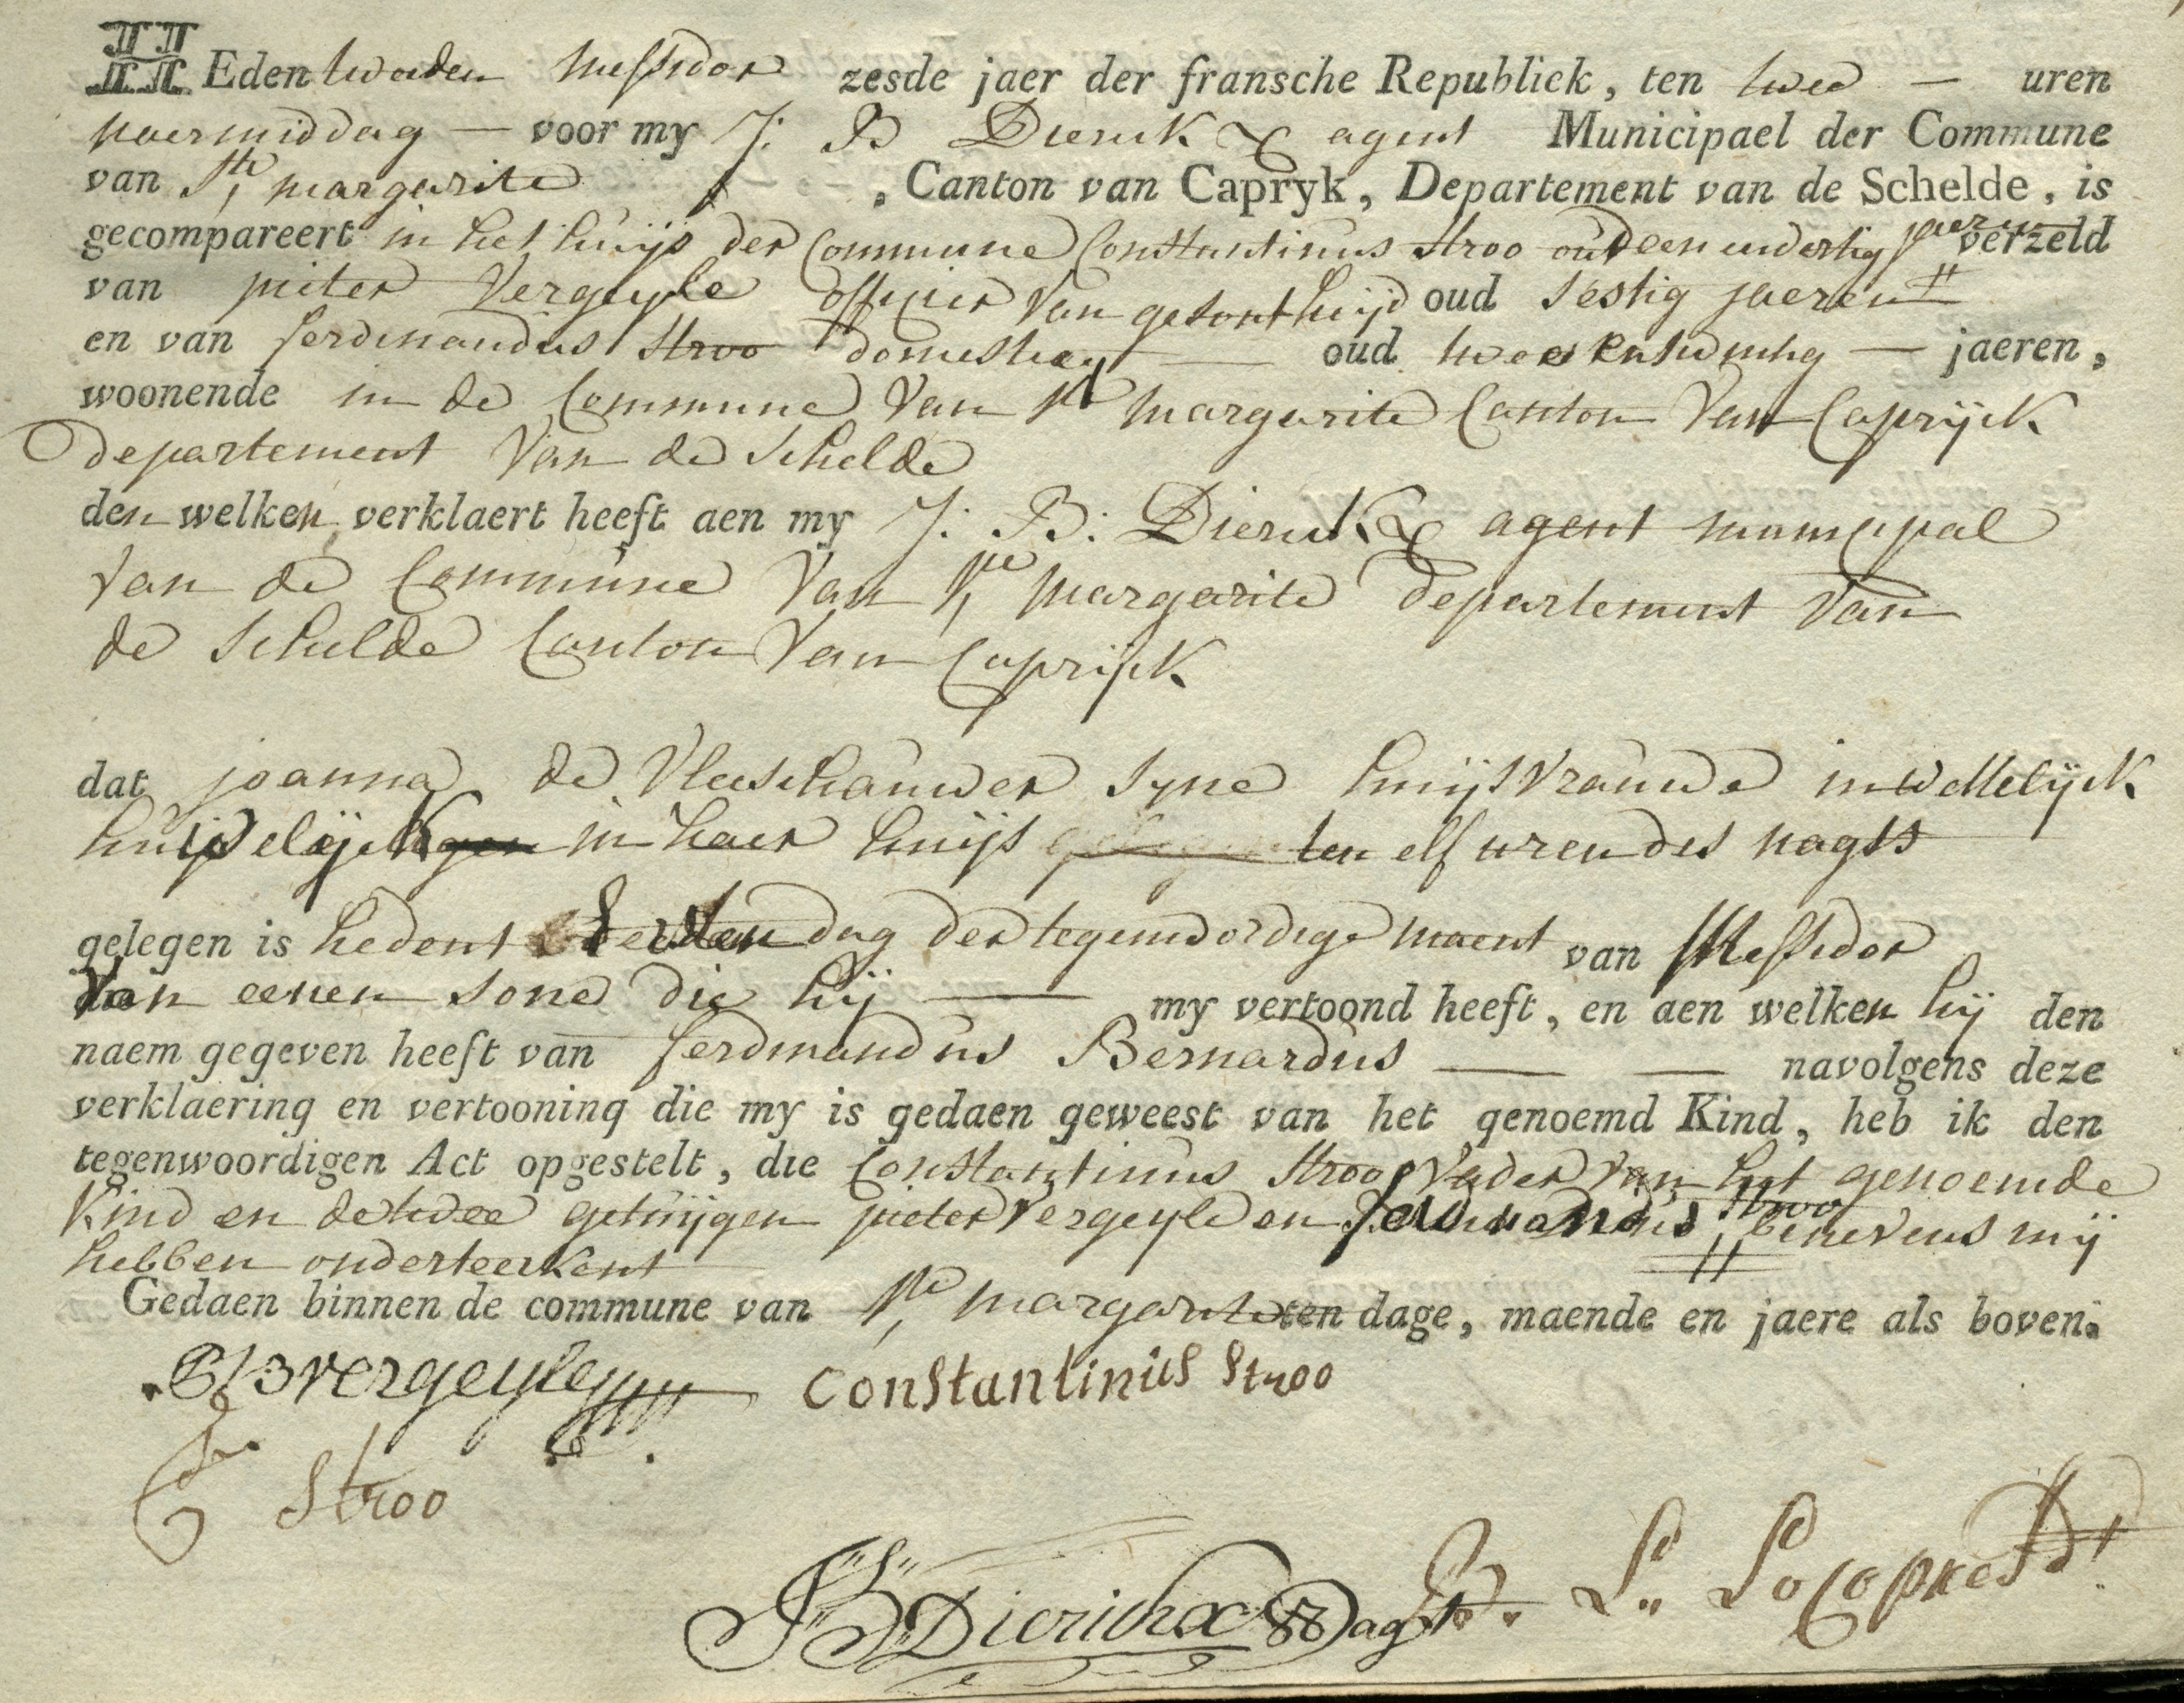 HEden tweeden messidor zesde jaer der fransche Republiek, ten twee — uren
naermiddag — voor my J: B Dierickx agent Municipael der Commune
van Ste margarite , Canton van Capryk, Departement van de Schelde, is
gecompareert in het huijs der Commune Constantinus Stroo oud een en dertig jaeren verzeld
van pieter Vergeyle offizier van gesontheijd oud sestig jaeren
en van ferdinandus Stroo domestieq — oud twee en twintig — jaeren,
woonende in de Commune van Ste margarite Canton Van Caprijck
Departement Van de Schelde
den welken verklaert heeft aen my J: B: Dierickx agent municipal
van de Commune Van Ste margarite Departement Van
de Schelde Canton Van Caprijck
dat joanna de Vleeschauwer syne huijsvrauwe in wettelijck
huwelijck in haer huijs ten elf uren des nagts
gelegen is hedent eersten dag der tegenwordige maent van Messidor
Van eenen sone die hij — my vertoond heeft, en aen welken hij den
naem gegeven heeft van ferdinandus Bernardus — — navolgens deze
verklaering en vertooning die my is gedaen geweest van het genoemd Kind, heb ik den
tegenwoordigen Act opgestelt, die Constantinus Stroo Vader van het genoemde
Kind en de twee getuijgen pieter Vergeyle en ferdinandus Stroo benevens mij
hebben onderteekent
Gedaen binnen de commune van Ste margarite ten dage, maende en jaere als boven.
vergeyle Constantinus Stroo
Stroo
JB Dierickx agt